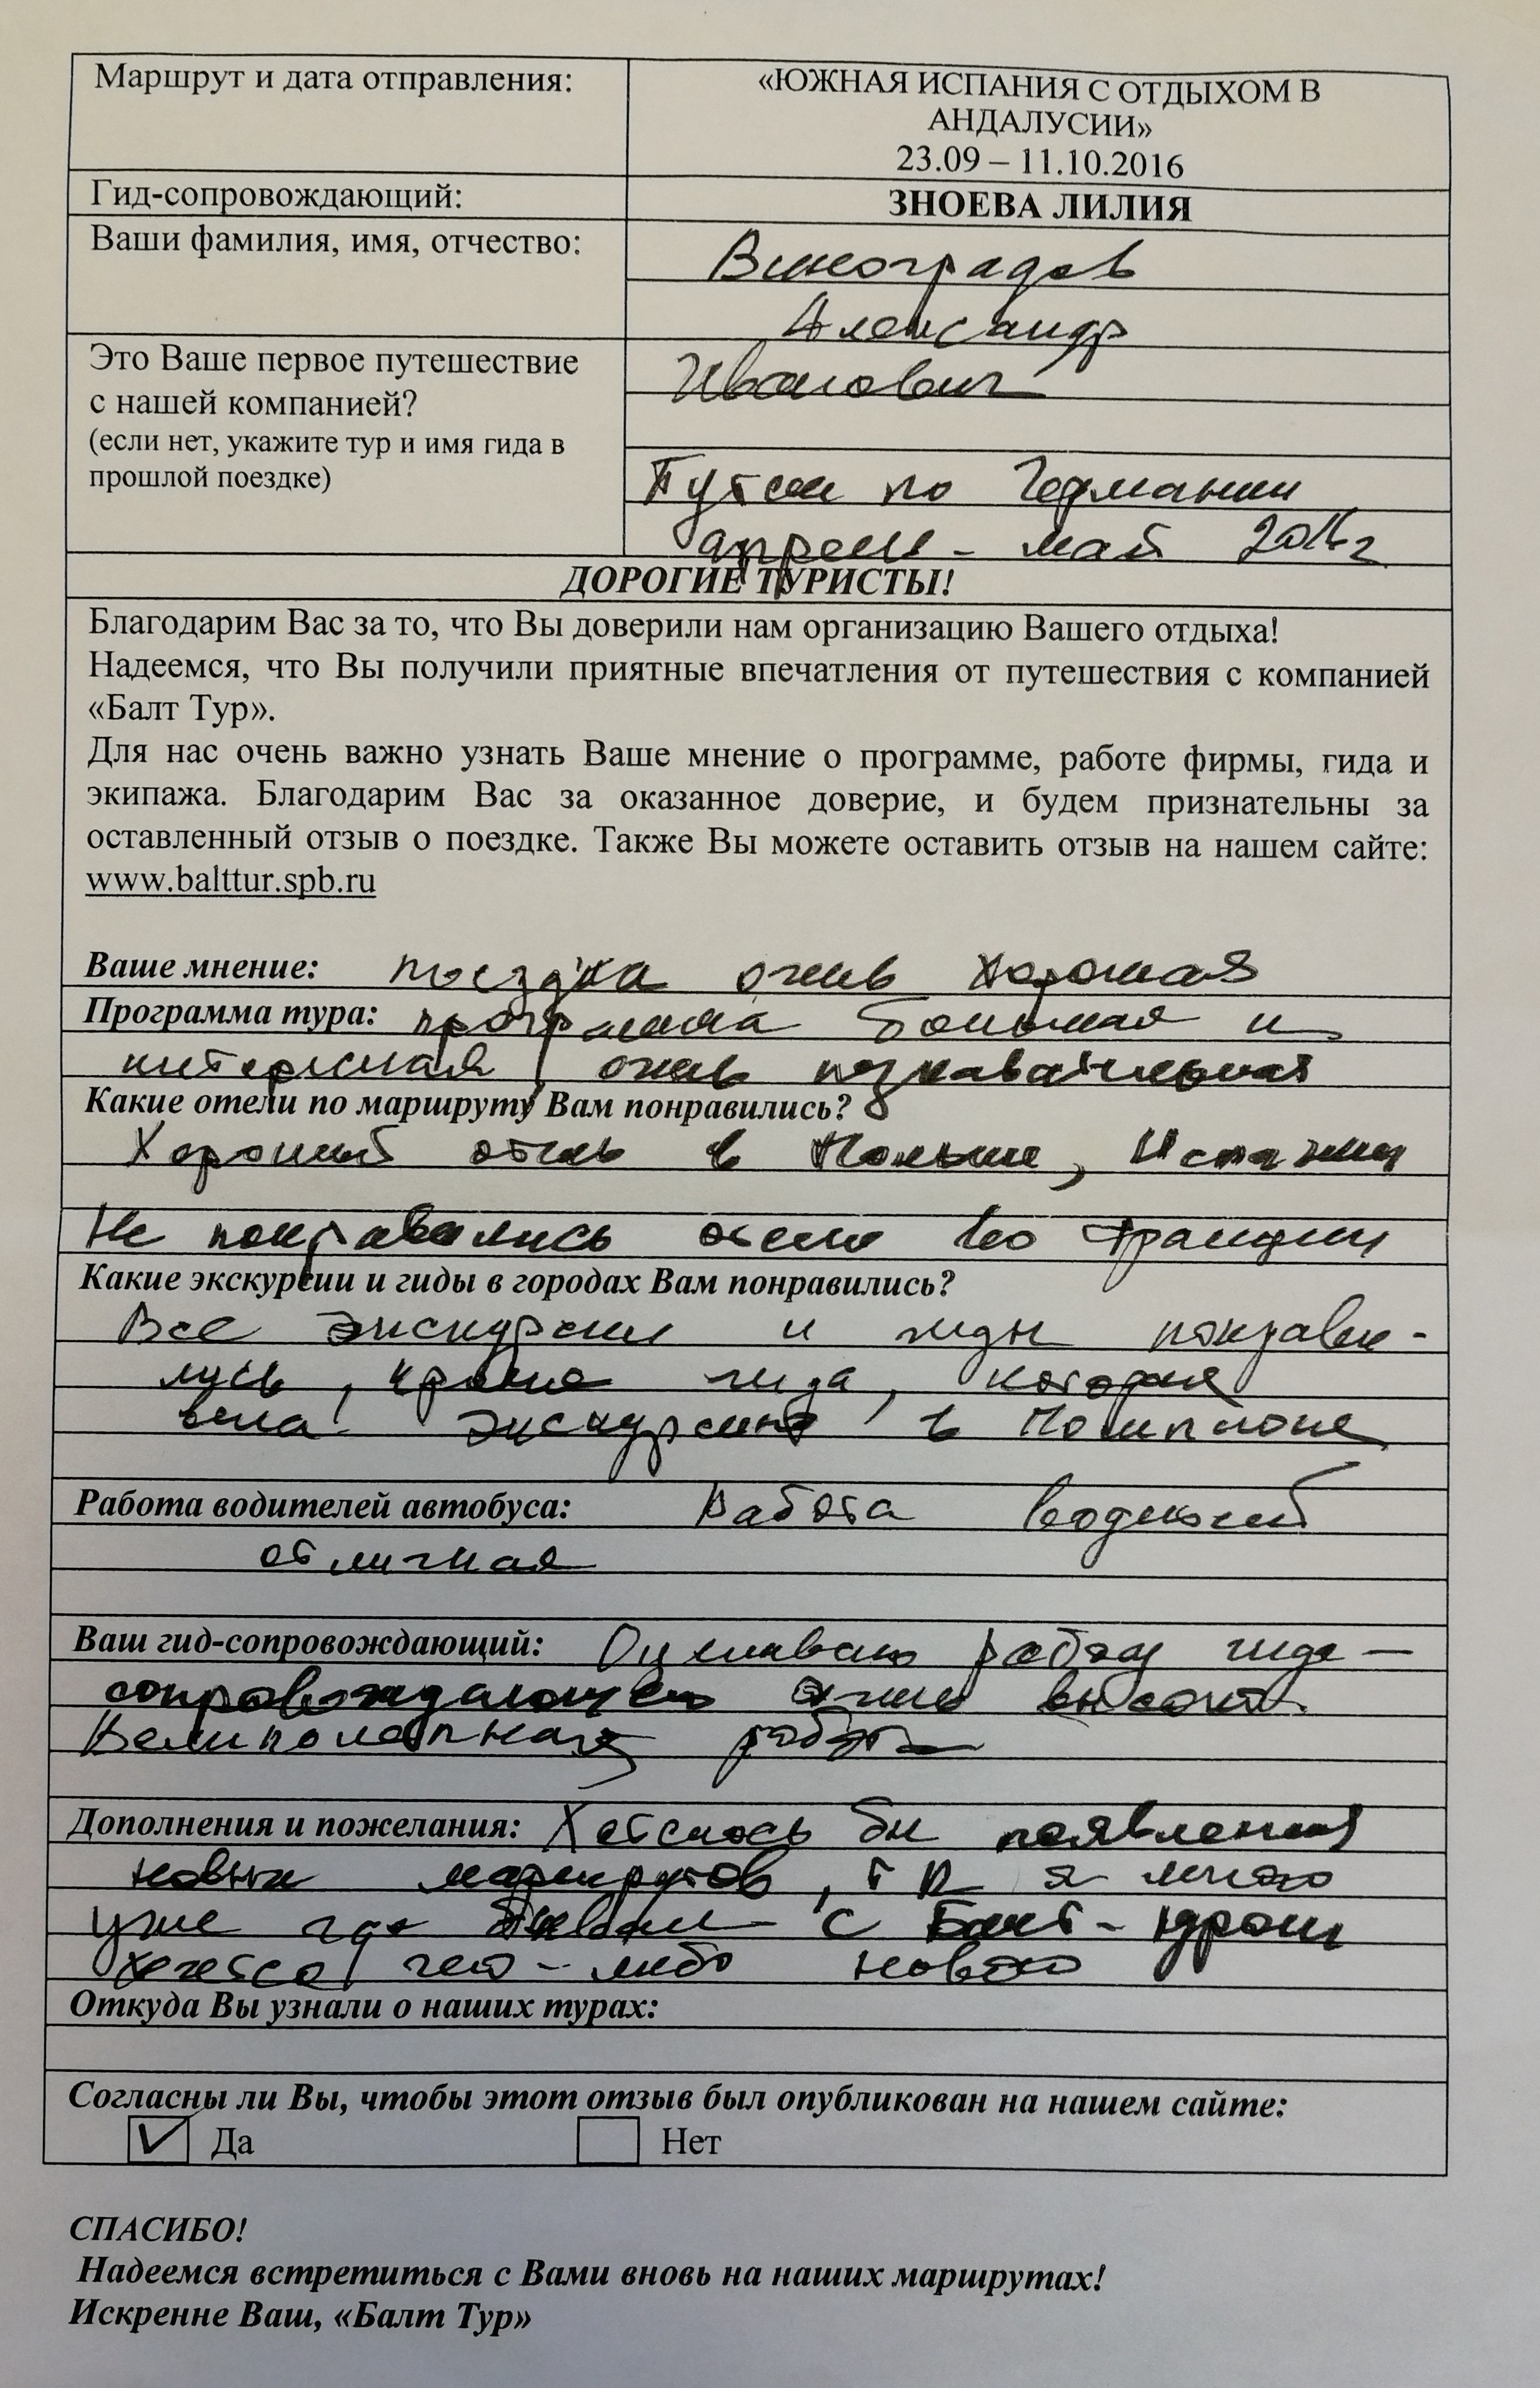 Маршрут и дата отправления:
«ЮЖНАЯ ИСПАНИЯ С ОТДЫХОМ В
АНДАЛУСИИ»
23.09 – 11.10.2016
Гид-сопровождающий:
ЗНОЕВА ЛИЛИЯ
Ваши фамилия, имя, отчество:
Виноградов
Александр
Иванович
Это Ваше первое путешествие
с нашей компанией?
(если нет, укажите тур и имя гида в
прошлой поездке)
по Германии
апрель - май 2016г
ДОРОГИЕ ТУРИСТЫ!
Благодарим Вас за то, что Вы доверили нам организацию Вашего отдыха!
Надеемся, что Вы получили приятные впечатления от путешествия с компанией
«Балт Тур».
Для нас очень важно узнать Ваше мнение о программе, работе фирмы, гида и
экипажа. Благодарим Вас за оказанное доверие, и будем признательны за
оставленный отзыв о поездке. Также Вы можете оставить отзыв на нашем сайте:
www.balttur.spb.ru
Ваше мнение: поездка очень хорошая
Программа тура: программа большая и
интересная, очень познавательная
Какие отели по маршруту Вам понравились?
Хороший отель в Польше, Испании
Не понравились отели во Франции
Какие экскурсии и гиды в городах Вам понравились?
Все экскурсии и гиды понрави-
лись, кроме гида, которая
вела экскурсию в
Работа водителей автобуса: Работа водителей
отличная
Ваш гид-сопровождающий: Оцениваю работу гида-
сопровождающего очень высоко.
Великолепная работа
Дополнения и пожелания: Хотелось бы появления
новых маршрутов, т к я много
уже где бывал с Балт-туром
хочется чего-либо нового
Откуда Вы узнали о наших турах:
Согласны ли Вы, чтобы этот отзыв был опубликован на нашем сайте:
Да Нет
СПАСИБО!
Надеемся встретиться с Вами вновь на наших маршрутах!
Искренне Ваш, «Балт Тур»